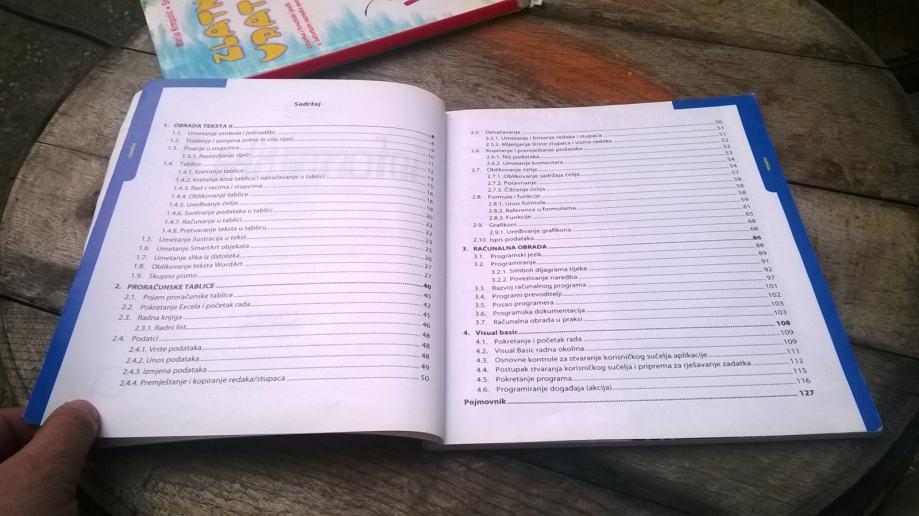 ZLATNA
VRATA
Sadržaj
1. OBRADA TEKSTA II
1.1. Umetanje simbola i jednadžbi
1.2. Traženje i zamjena jedne ili više riječi
1.3. Pisanje u stupcima
1.3.1. Rastavljanje riječi
1.4. Tablice
1.4.1. Kreiranje tablice
1.4.2. Kretanje kroz tablicu i označavanje u tablici
1.4.3. Rad s recima i stupcima
1.4.4. Oblikovanje tablice
1.4.5. Uređivanje ćelije
1.4.6. Sortiranje podataka u tablici
1.4.7. Računanje u tablici
1.4.8. Pretvaranje teksta u tablicu
1.5. Umetanje ilustracija u tekst
1.6. Umetanje SmartArt objekata
1.7. Umetanje slika iz datoteka
1.8. Oblikovanje teksta WordArt
1.9. Skupno pismo 27
2. PRORAČUNSKE TABLICE 40
2.1. Pojam proračunske tablice 40
2.2. Pokretanje Excela i početak rada 42
2.3. Radna knjiga 45
2.3.1. Radni list 46
2.4. Podatci 48
2.4.1. Vrste podataka 48
2.4.2. Unos podataka 48
2.4.3. Izmjena podataka 49
2.4.4. Premještanje i kopiranje redaka/stupaca 50
2.5. Označavanje 50
2.5.1. Umetanje i brisanje redaka i stupaca 51
2.5.2. Mijenjanje širine stupaca i visine redaka 51
2.6. Kopiranje i premještanje podataka 52
2.6.1. Niz podataka 52
2.6.2. Umetanje komentara 53
2.7. Oblikovanje ćelija 54
2.7.1. Oblikovanje sadržaja ćelije 54
2.7.2. Poravnanje 57
2.7.3. Čišćenje ćelija 58
2.8. Formule i funkcije 58
2.8.1. Unos formula 58
2.8.2. Reference u formulama 59
2.8.3. Funkcije 61
2.9. Grafikoni 65
2.9.1. Uređivanje grafikona 68
2.10. Ispis podataka 68
3. RAČUNALNA OBRADA 86
3.1. Programski jezik 88
3.2. Programiranje 89
3.2.1. Simboli dijagrama tijeka 91
3.2.2. Povezivanje naredba 92
3.3. Razvoj računalnog programa 97
3.4. Programi prevoditelji 101
3.5. Posao programera 102
3.6. Programska dokumentacija 103
3.7. Računalna obrada u praksi 103
4. Visual basic 108
4.1. Pokretanje i početak rada 109
4.2. Visual Basic radna okolina 109
4.3. Osnovne kontrole za stvaranje korisničkog sučelja aplikacije 111
4.4. Postupak stvaranja korisničkog sučelja i priprema za rješavanje zadatka 112
4.5. Pokretanje programa 115
4.6. Programiranje događaja (akcija) 116
Pojmovnik 127